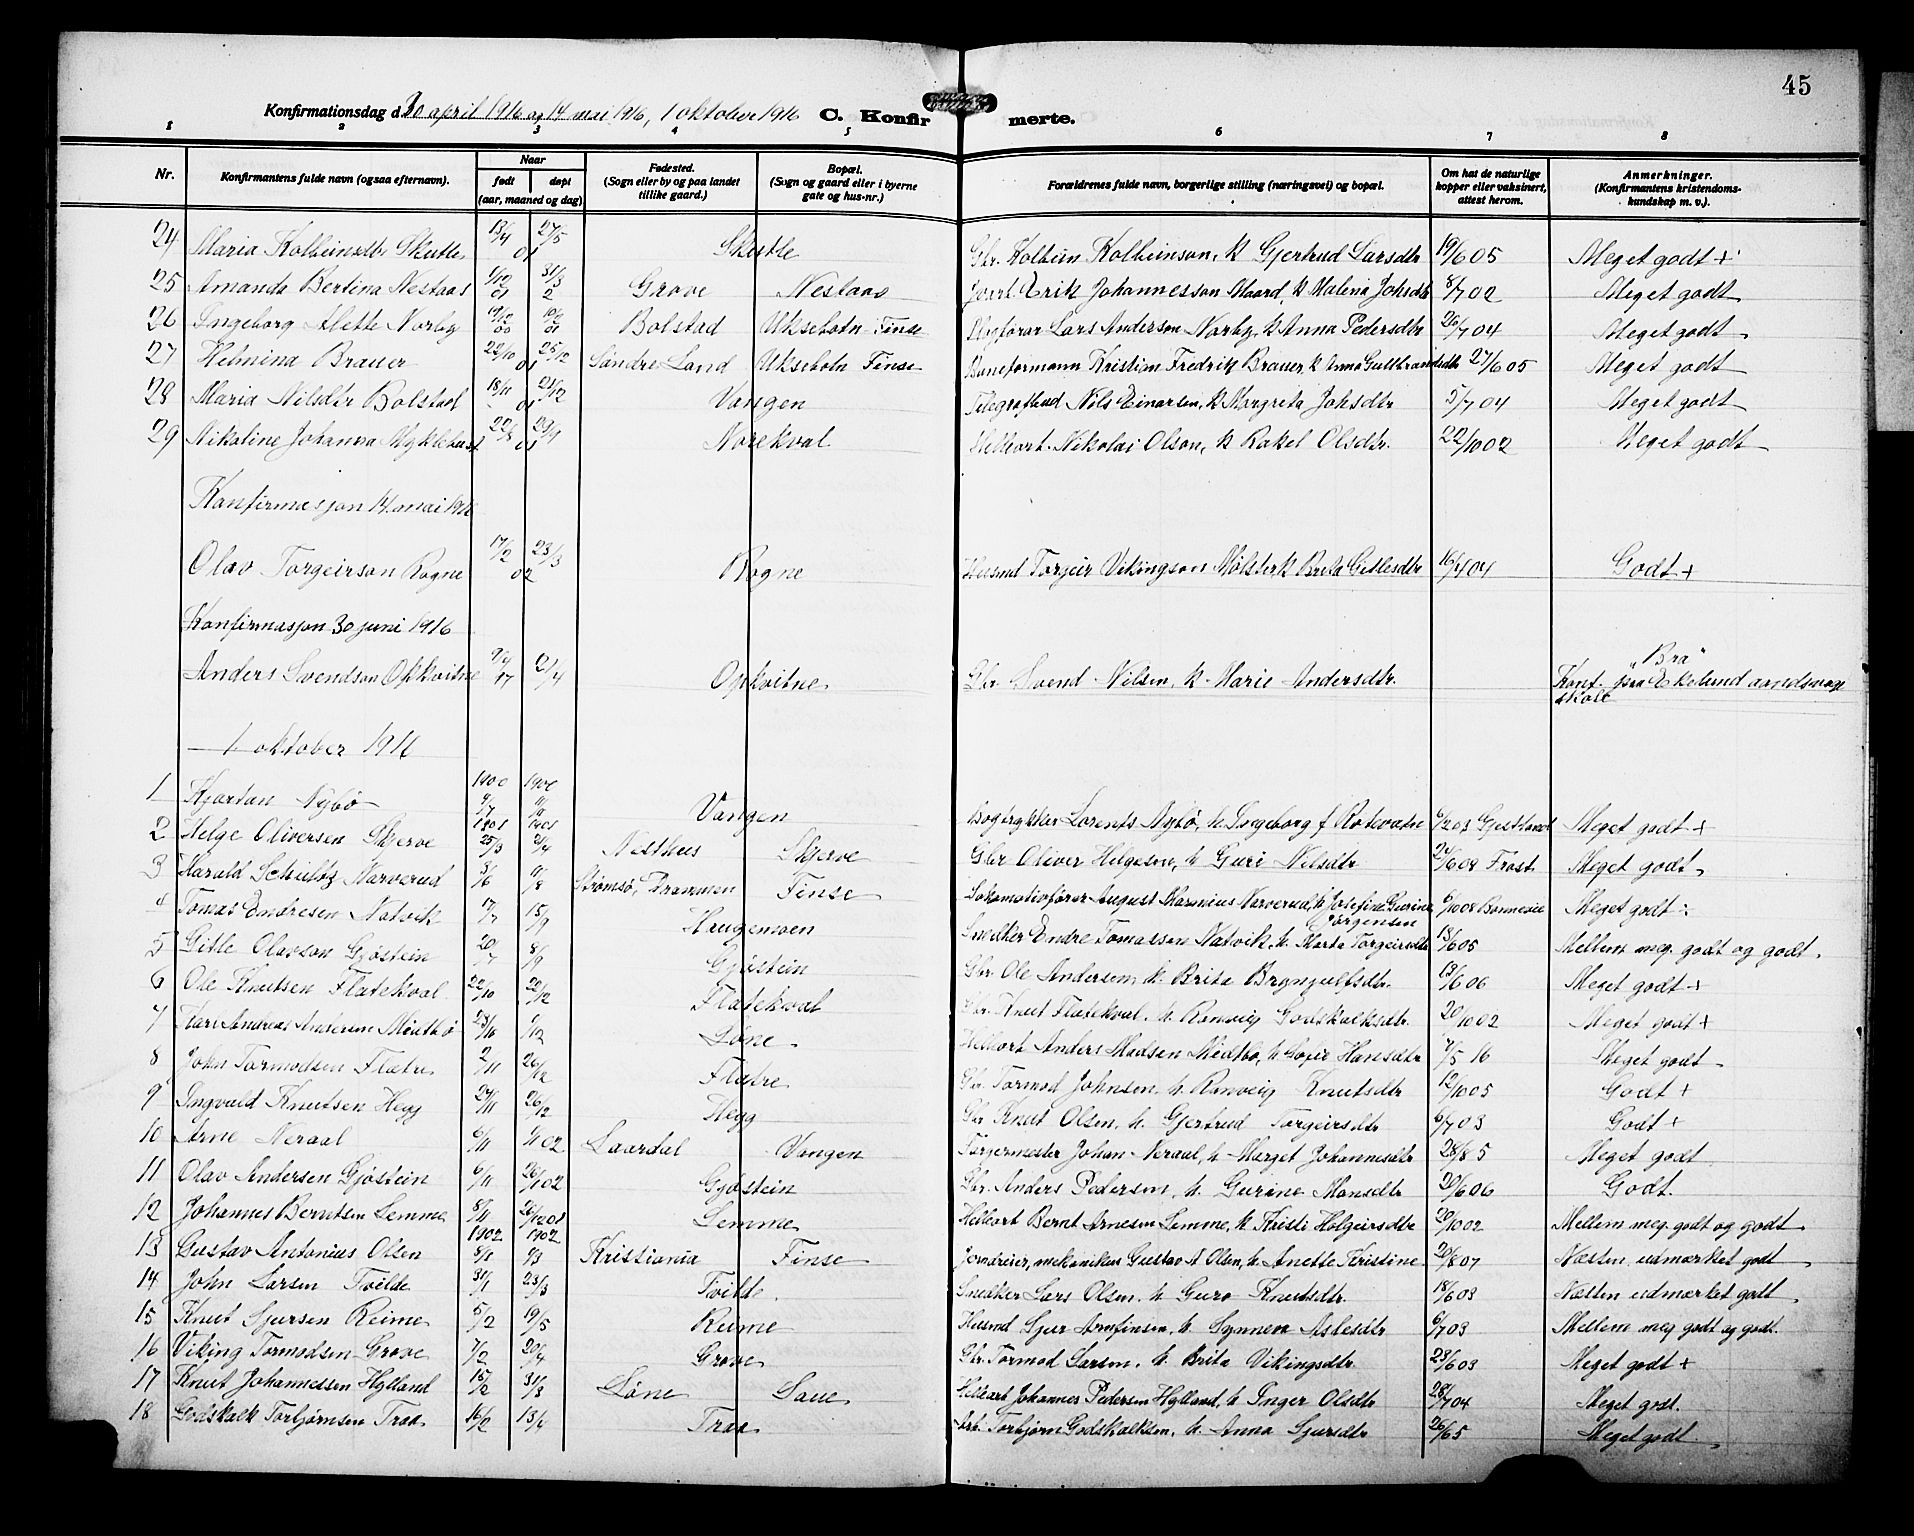 45
Konfirmationsdag d. 30 april 1916 og 14 mai 1916, 1 oktober 1916 C. Konfirmerte.
1 2 3 4 5 6 7 8
Nr. Konfirmantens fulde navn (ogsaa efternavn). Naar født døpt (aar, maaned og dag) Fødested. (Sogn eller by og paa landet tillike gaard.) Bopæl. (Sogn og gaard eller i byerne gate og hus-nr.) Forældrenes fulde navn, borgerlige stilling (næringsvei) og bopæl. Om hat de naturlige kopper eller vaksinert, attest herom. Anmerkninger. (Konfirmantens kristendoms-kundskap m. v.).
24 Maria Kolbeinsdtr Skutle 13/4 27/5 01 Skutle Gbr. Kolbein Kolbeinson, k Gjertrud Larsdtr 19/6 05 Meget godt +
25 Amanda Bertina Nestaas 1/12 01 31/3 2 Grove Nestaas Erik Johannesson Maard, k Malena Johsdtr 8/7 02 Meget godt
26 Ingeborg Alette Norby 19/12 00 10/2 01 Bolstad Uksebotn Finse Lars Anderson Norby, k Anna Pedersdtr 26/7 04 Meget godt
27 Helmina Brauer 22/10 25/12 01 Søndre Land Uksebotn Finse Baneformann Kristian Fredrik Brauer, k Anna Gulbrandsdtr 27/6 05 Meget godt
28 Maria Nilsdtr Bolstad 18/11 21/12 01 Vangen Nils Einarsen, k Margreta Johsdtr 5/7 04 Meget godt
29 Nikoline Johanna Myklebust 22/8 23/9 01 Norekval Nikolai Olson, k Rakel Olsdtr. 22/10 02 Meget godt
Konfirmasjon 14. mai 1916
Olav Torgeirson Rogne 17/2 23/3 02 Rogne Husmd Torgeir Vikingson Mølster k Brita Gitlesdtr 16/7 04 Godt +
Konfirmasjon 30 juni 1916
Anders Svendson Opkvitne 21/4 Opkvitne Gbr Svend Nilsen, k. Marie Andersdtr. "Bra"
Konf. paa Ekelund aandsvage skole
1 oktober 1916
1900 1900
1 Kjartan Nybø Vangen Bogtrykker Lorents Nybø, k. Ingeborg f Rotevatn Meget godt +
1901 1901
2 Helge Oliversen Skjerve 25/3 21/4 Nesthus Skjerve Gbr Oliver Helgesen, k Guri Nilsdtr Meget godt
3 Harald Schultz Narverud 3/6 11/8 Strømsø, Drammen Finse Lokomotivfører August Marenius Narverud, k Josefine Gurine Jørgensen Meget godt +
4 Tomas Endresen Natvik 17/7 15/9 Haugamoen Snedker Endre Tomassen Natvik, k. Marta Torgeirsdtr 13/6 05 Mellem meg. godt og godt.
5 Gitle Olavson Gjøstein 20/7 8/9 Gjøstein Gbr. Ole Andersen k. Brita Brynjulfsdtr. 13/6 06 Meget godt +
6 Ole Knutsen Flatekval 22/10 22/12 Flatekval Gbr. Knut Flatekval, k. Ranveig Godskalksdtr. 20/10 02 Meget godt +
7 Karl Andreas Andersen Midtbø Løne Anders Madsen Midtbø, k Sofie Hansdtr Meget godt
8 John Tormodsen Flatre 2/11 26/12 Flatre Gbr. Tormod Johnsen, k. Ranveig Knutsdtr 12/10 05 Godt +
9 Ingvald Knutsen Hegg 24/11 26/12 Hegg Gbr Knut Olsen, k. Gjertrud Torgeirsdtr 6/7 03 Godt +
10 Arne Neraal 6/11 Laardal Vangen Johan Neraal, k Marget Johannesdtr 28/8 5 Meget godt
11 Olav Andersen Gjøstein 6/11 26/1 02 Gjøstein Gbr. Anders Pedersen, k. Gurine Monsdtr 20/6 06 Godt.
12 Johannes Berntsen Lemme 8/11 26/12 01 Lemme Bernt Arnesen Lemme, k Kristi Holgeirsdtr 20/10 02 Mellem meg. godt og godt
1902 1902
13 Gustav Antonius Olsen 8/1 9/3 Kristiania Finse mekanikus Gustav A Olsen, k. Anette Kristine 20/8 07 Næsten udmerket godt
14 John Larsen Tvilde 31/1 23/3 Tvilde. Snedker Lars Olsen, k. Guro Knutsdtr. 18/6 03 Næsten udmerket godt
15 Knut Sjursen Reime 5/2 19/5 Reime Husmd Sjur Arnfinsen, k. Synneva Aslesdtr 6/7 03 Mellem meg godt og godt.
16 Viking Tormodsen Grove 7/2 20/4 Grove Gbr. Tormod Larsen, k. Brita Vikingsdtr 23/6 03 Meget godt +
17 Knut Johannessen Hylland 15/2 31/3 Løne Saue Johannes Pedersen Hylland, k Inger Olsdtr 28/7 04 Meget godt.
18 Godskalk Torbjørnsen Traa 16/2 13/4 Traa Torbjørn Godskalksen, k. Anna Sjursdtr 26/6 5 Meget godt.